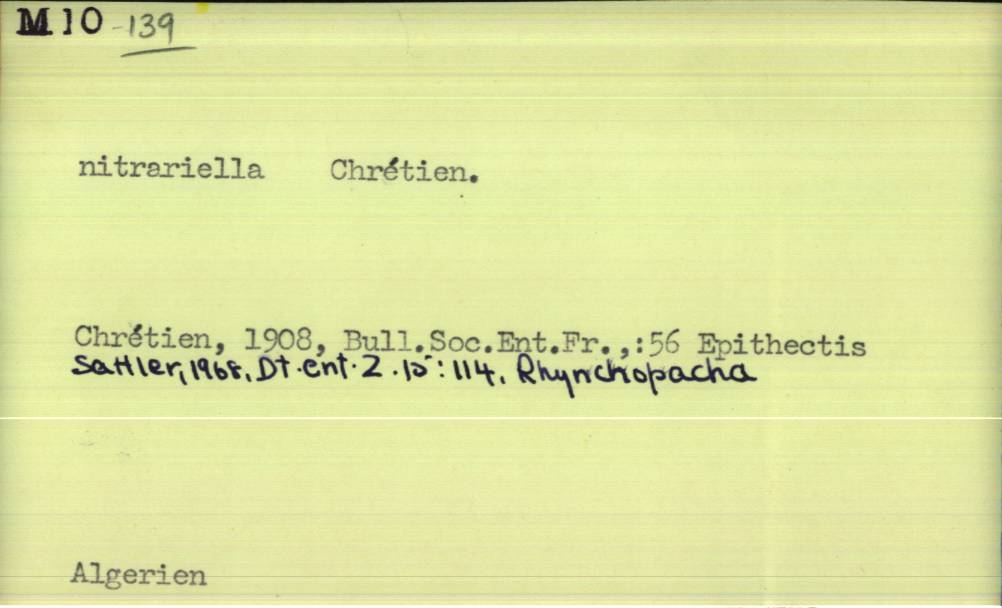 M 10 -139
nitrariella Chrétien.
Chrétien, 1908, Bull.Soc.Ent.Fr.,:56 Epithectis
Sattler, 1968, Dt. ent. Z. 15: 114. Rhynchopacha
Algerien